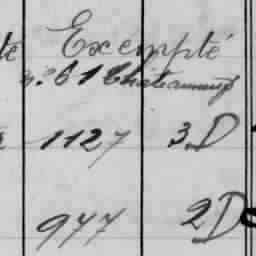 te Exempté
n° 61 Chateauneuf
1127 3D
977 2D